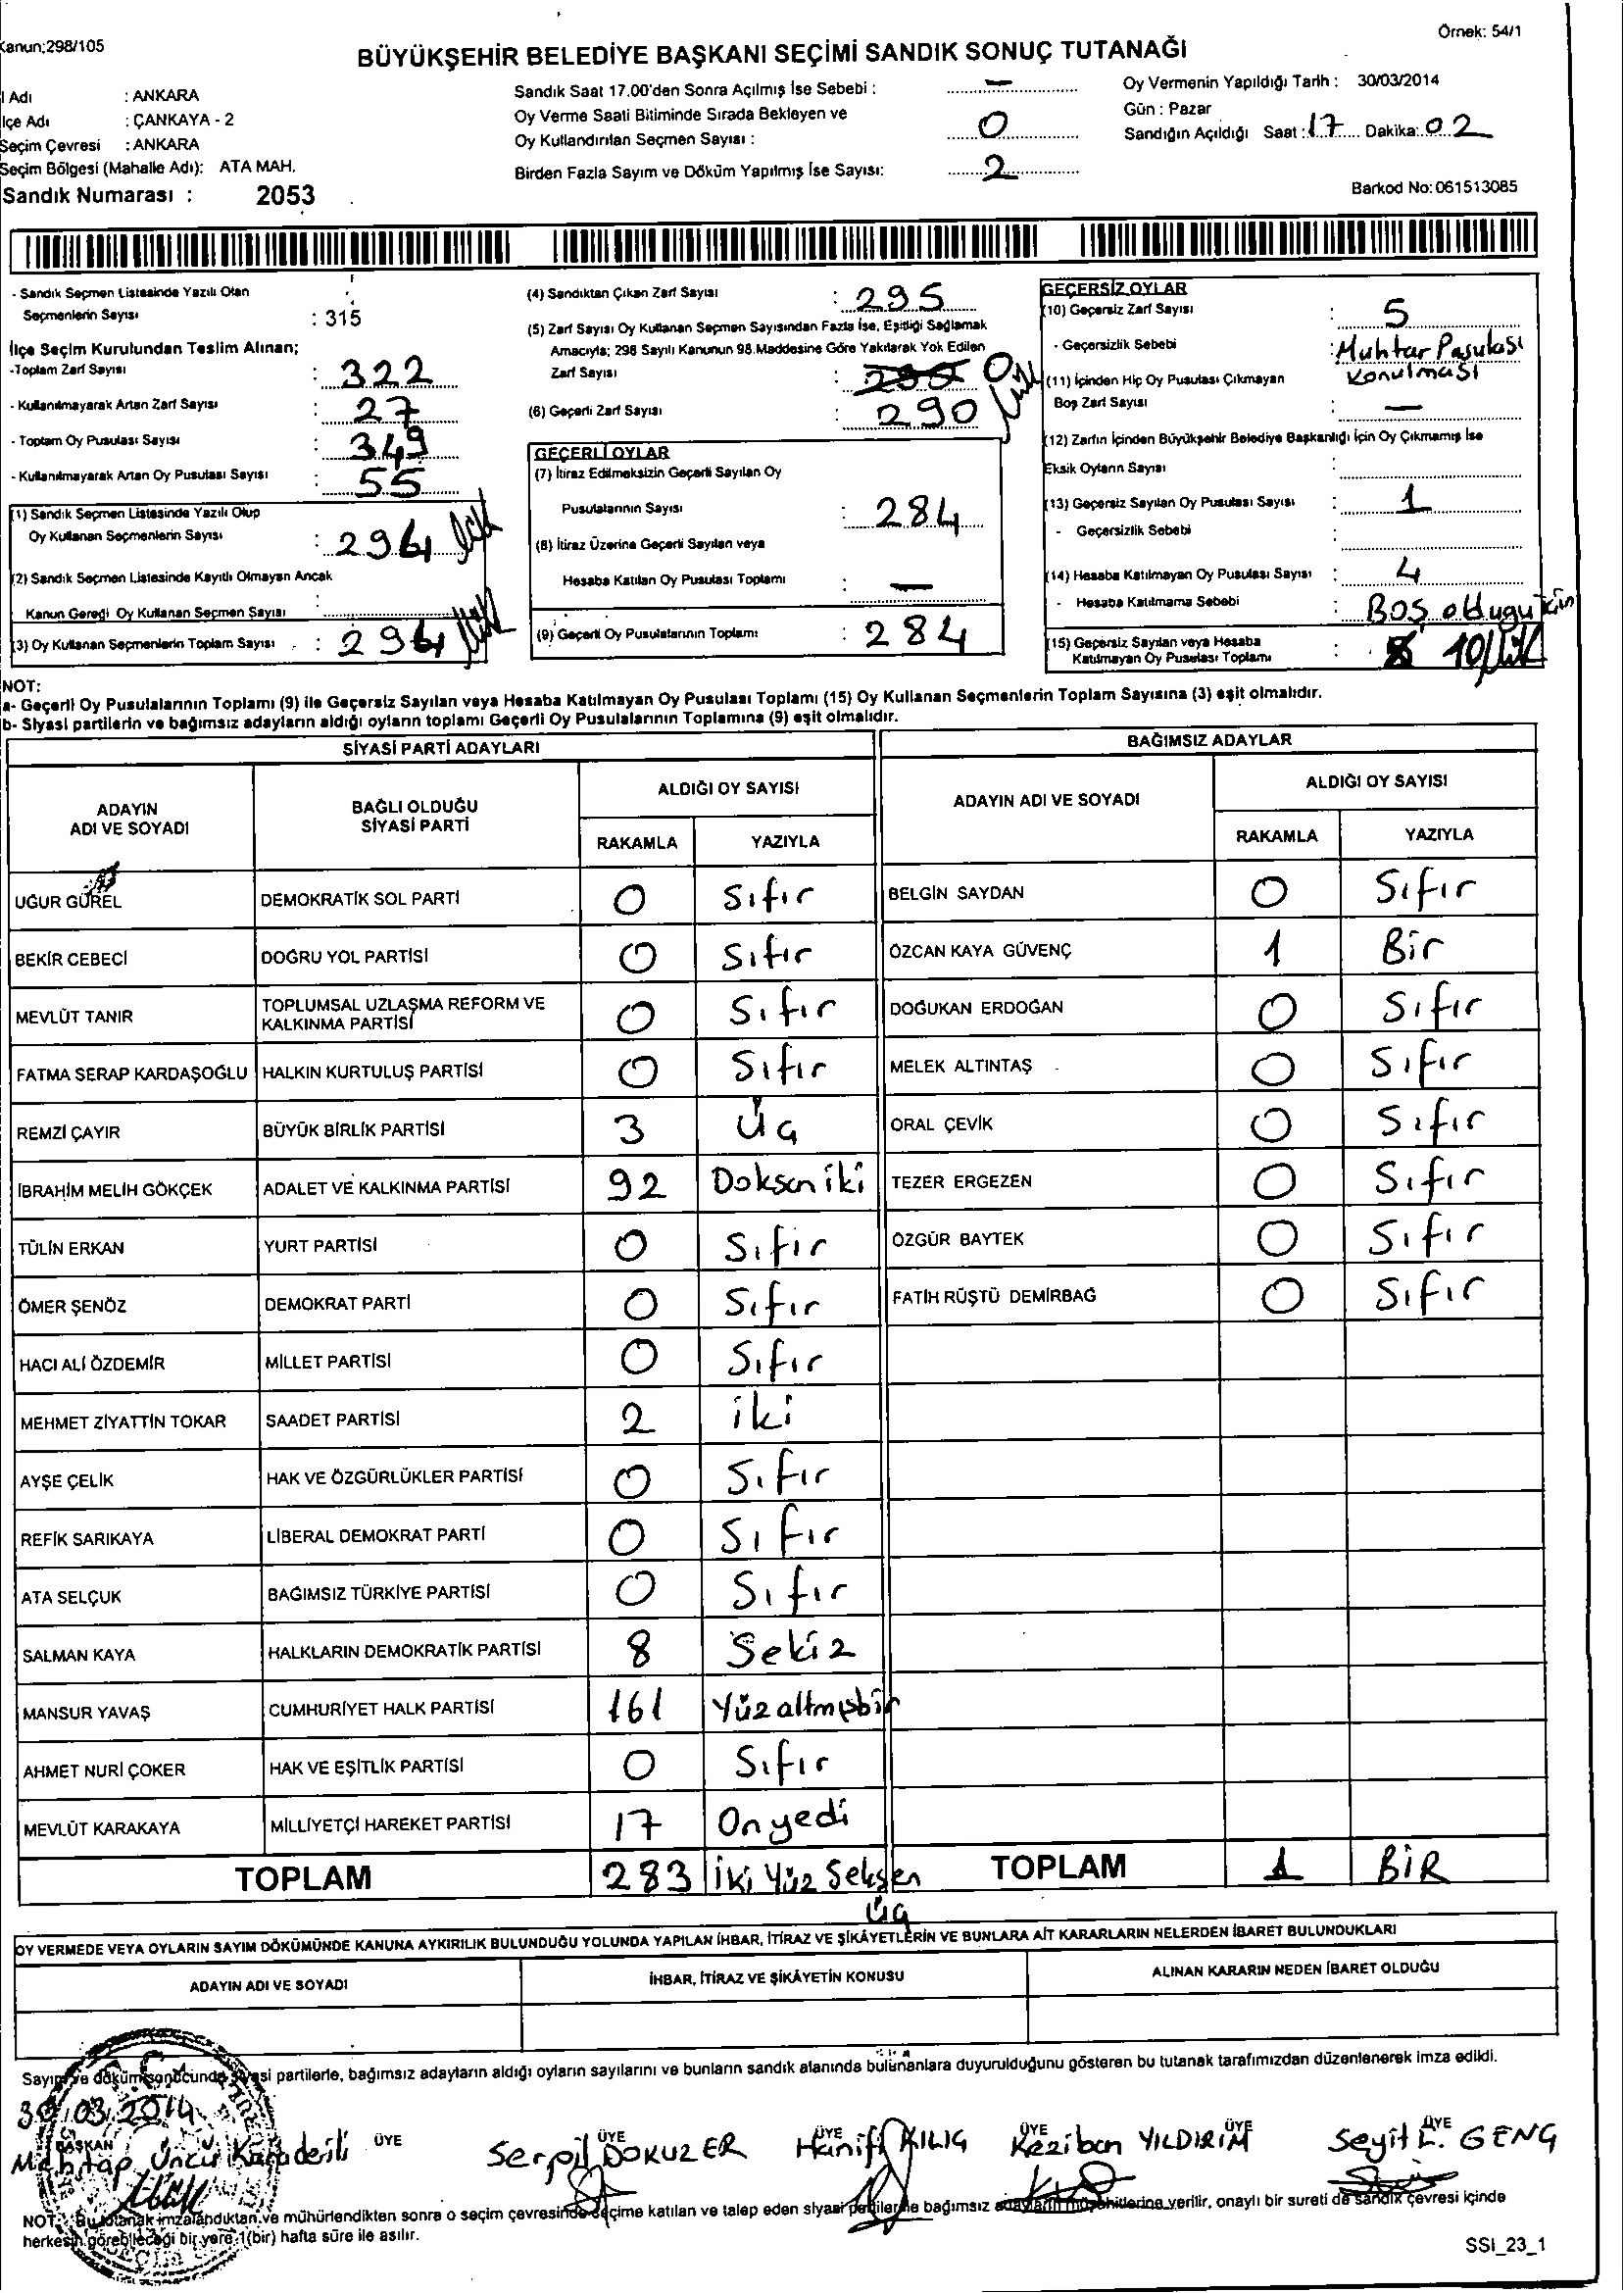 Kanun;298/105
Örnek: 54/1
BÜYÜKŞEHİR BELEDİYE BAŞKANI SEÇİMİ SANDIK SONUÇ TUTANAĞI
l Adı : ANKARA
lçe Adı : ÇANKAYA - 2
Seçim Çevresi : ANKARA
Seçim Bölgesi (Mahalle Adı): ATA MAH.
Sandık Numarası : 2053
Sandık Saat 17.00'den Sonra Açılmış İse Sebebi : —
Oy Verme Saati Bitiminde Sırada Bekleyen ve
Oy Kullandırılan Seçmen Sayısı : 0
Birden Fazla Sayım ve Döküm Yapılmış İse Sayısı: 2
Oy Vermenin Yapıldığı Tarih : 30/03/2014
Gün : Pazar
Sandığın Açıldığı Saat : 17 Dakika: 02
Barkod No: 061513085
- Sandık Seçmen Listesinde Yazılı Olan
Seçmenlerin Sayısı : 315
İlçe Seçim Kurulundan Teslim Alınan;
-Toplam Zarf Sayısı : 322
- Kullanılmayarak Artan Zarf Sayısı : 27
- Toplam Oy Pusulası Sayısı : 349
- Kullanılmayarak Artan Oy Pusulası Sayısı : 55
(1) Sandık Seçmen Listesinde Yazılı Olup
Oy Kullanan Seçmenlerin Sayısı : 294
(2) Sandık Seçmen Listesinde Kayıtlı Olmayan Ancak
Kanun Gereği Oy Kullanan Seçmen Sayısı :
(3) Oy Kullanan Seçmenlerin Toplam Sayısı : 294
(4) Sandıktan Çıkan Zarf Sayısı : 295
(5) Zarf Sayısı Oy Kullanan Seçmen Sayısından Fazla İse, Eşitliği Sağlamak
Amacıyla; 298 Sayılı Kanunun 98.Maddesine Göre Yakılarak Yok Edilen
Zarf Sayısı : 295 0
(6) Geçerli Zarf Sayısı : 290
GEÇERLİ OYLAR
(7) İtiraz Edilmeksizin Geçerli Sayılan Oy
Pusulalarının Sayısı : 284
(8) İtiraz Üzerine Geçerli Sayılan veya
Hesaba Katılan Oy Pusulası Toplamı : —
(9) Geçerli Oy Pusulalarının Toplamı : 284
GEÇERSİZ OYLAR
(10) Geçersiz Zarf Sayısı : 5
- Geçersizlik Sebebi : Muhtar Pasulası
Konulması
(11) İçinden Hiç Oy Pusulası Çıkmayan
Boş Zarf Sayısı : —
(12) Zarfın İçinden Büyükşehir Belediye Başkanlığı İçin Oy Çıkmamış İse
Eksik Oyların Sayısı :
(13) Geçersiz Sayılan Oy Pusulası Sayısı : 1
- Geçersizlik Sebebi :
(14) Hesaba Katılmayan Oy Pusulası Sayısı : 4
- Hesaba Katılmama Sebebi : Boş olduğu için
(15) Geçersiz Sayılan veya Hesaba
Katılmayan Oy Pusulası Toplamı : 10
NOT:
a- Geçerli Oy Pusulalarının Toplamı (9) ile Geçersiz Sayılan veya Hesaba Katılmayan Oy Pusulası Toplamı (15) Oy Kullanan Seçmenlerin Toplam Sayısına (3) eşit olmalıdır.
b- Siyasi partilerin ve bağımsız adayların aldığı oyların toplamı Geçerli Oy Pusulalarının Toplamına (9) eşit olmalıdır.
SİYASİ PARTİ ADAYLARI
ADAYIN ADI VE SOYADI BAĞLI OLDUĞU SİYASİ PARTİ ALDIĞI OY SAYISI
RAKAMLA YAZIYLA
UĞUR GÜREL DEMOKRATİK SOL PARTİ 0 Sıfır
BEKİR CEBECİ DOĞRU YOL PARTİSİ 0 Sıfır
MEVLÜT TANIR TOPLUMSAL UZLAŞMA REFORM VE KALKINMA PARTİSİ 0 Sıfır
FATMA SERAP KARDAŞOĞLU HALKIN KURTULUŞ PARTİSİ 0 Sıfır
REMZİ ÇAYIR BÜYÜK BİRLİK PARTİSİ 3 Üç
İBRAHİM MELİH GÖKÇEK ADALET VE KALKINMA PARTİSİ 92 Doksan iki
TÜLİN ERKAN YURT PARTİSİ 0 Sıfır
ÖMER ŞENÖZ DEMOKRAT PARTİ 0 Sıfır
HACI ALİ ÖZDEMİR MİLLET PARTİSİ 0 Sıfır
MEHMET ZİYATTİN TOKAR SAADET PARTİSİ 2 iki
AYŞE ÇELİK HAK VE ÖZGÜRLÜKLER PARTİSİ 0 Sıfır
REFİK SARIKAYA LİBERAL DEMOKRAT PARTİ 0 Sıfır
ATA SELÇUK BAĞIMSIZ TÜRKİYE PARTİSİ 0 Sıfır
SALMAN KAYA HALKLARIN DEMOKRATİK PARTİSİ 8 Sekiz
MANSUR YAVAŞ CUMHURİYET HALK PARTİSİ 161 Yüz altmışbir
AHMET NURİ ÇOKER HAK VE EŞİTLİK PARTİSİ 0 Sıfır
MEVLÜT KARAKAYA MİLLİYETÇİ HAREKET PARTİSİ 17 On yedi
TOPLAM 283 İki Yüz Seksen
Üç
BAĞIMSIZ ADAYLAR
ADAYIN ADI VE SOYADI ALDIĞI OY SAYISI
RAKAMLA YAZIYLA
BELGİN SAYDAN 0 Sıfır
ÖZCAN KAYA GÜVENÇ 1 Bir
DOĞUKAN ERDOĞAN 0 Sıfır
MELEK ALTINTAŞ 0 Sıfır
ORAL ÇEVİK 0 Sıfır
TEZER ERGEZEN 0 Sıfır
ÖZGÜR BAYTEK 0 Sıfır
FATİH RÜŞTÜ DEMİRBAĞ 0 Sıfır
TOPLAM 1 BİR
OY VERMEDE VEYA OYLARIN SAYIM DÖKÜMÜNDE KANUNA AYKIRILIK BULUNDUĞU YOLUNDA YAPILAN İHBAR, İTİRAZ VE ŞİKÂYETLERİN VE BUNLARA AİT KARARLARIN NELERDEN İBARET BULUNDUKLARI
ADAYIN ADI VE SOYADI İHBAR, İTİRAZ VE ŞİKÂYETİN KONUSU ALINAN KARARIN NEDEN İBARET OLDUĞU
Sayım ve döküm sonucunda siyasi partilerle, bağımsız adayların aldığı oyların sayılarını ve bunların sandık alanında bulunanlara duyurulduğunu gösteren bu tutanak tarafımızdan düzenlenerek imza edildi.
30/03/2014
BAŞKAN ÜYE ÜYE ÜYE ÜYE ÜYE ÜYE
Mehtap Üncü Karadeili Serpil DOKUZER Hanifi KILIÇ Keziban YILDIRIM Seyit E. GENÇ
NOT: Bu tutanak imzalandıktan ve mühürlendikten sonra o seçim çevresinde seçime katılan ve talep eden siyasi partilerle bağımsız adayların müşahitlerine verilir, onaylı bir sureti de sandık çevresi içinde
herkesin görebileceği bir yere 1(bir) hafta süre ile asılır.
SSI_23_1